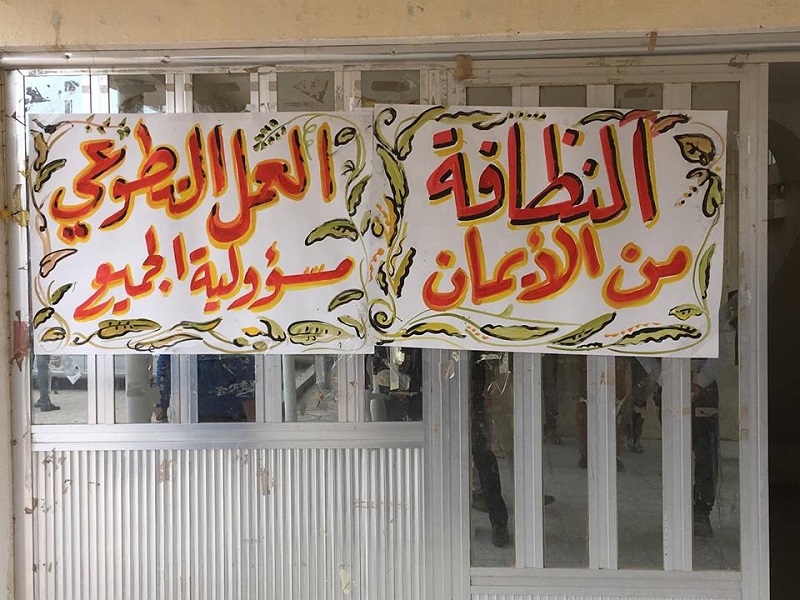 النظافة
من الأيمان
العمل التطوعي
مسؤولية الجميع